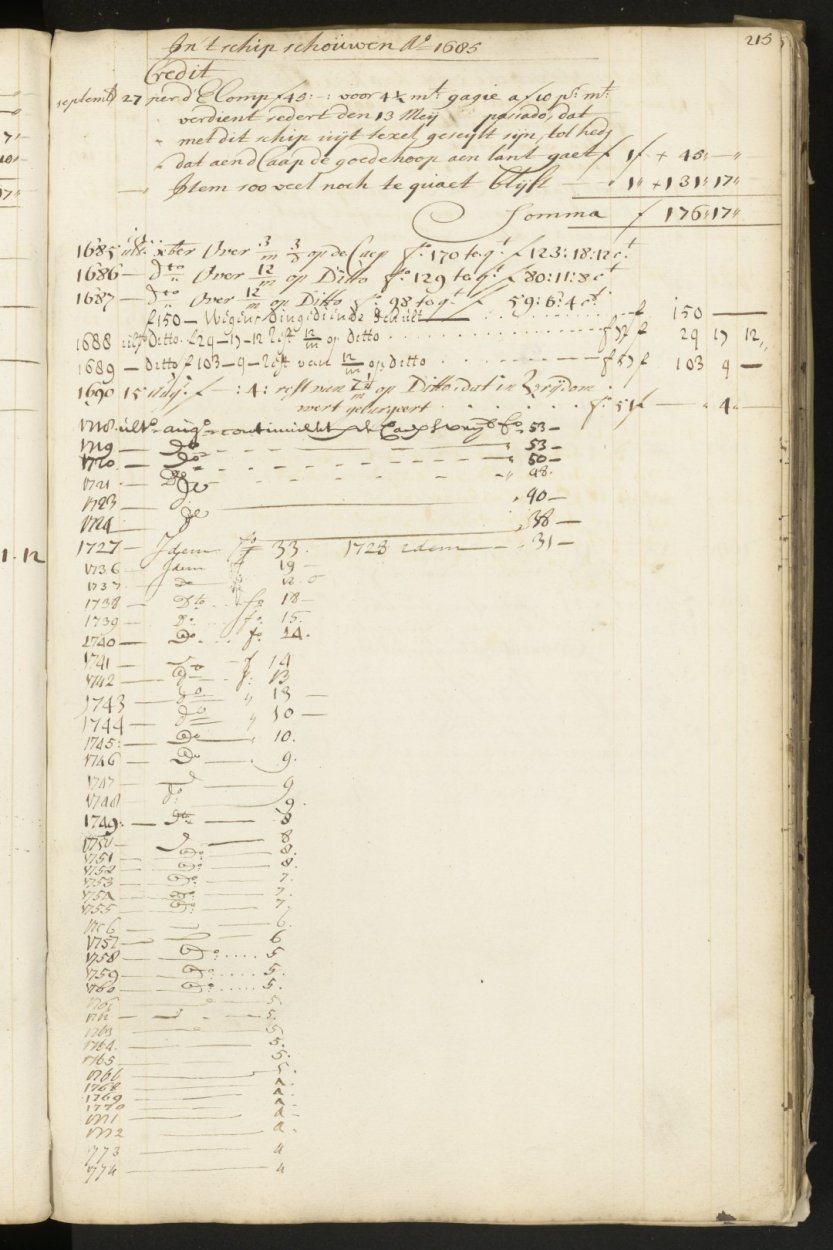 215
In 't schip schouwen Ao 1685
Credit
septembr 27 per d'E Comp f 45:-: voor 4½ mt gagie a f 10 pr mt
verdient sedert den 13 Meij passado, dat
met dit schip uijt texel geseylt sijn, tot heden
dat aen d Caap de goede hoop aen lant gaet f 1 f + 45,, — ,,
Item soo veel noch te quaet blijft — ,, 1,, + 131,, 17,,
Somma f 176,, 17,,
1685 xber Over 3/m op de Caep fo 170 te qt f 123:18:12 ct
1686 — dto Over 12/m op Ditto fo 129 te qt f 80:11:8 ct
1687 — dto Over 12/m op Ditto fo 98 te qt f 59:6:4 ct
f 150 — Wegens f 150 —
1688 ulto Ditto f 29-17-12 rest 12/m op ditto f 29 17 12,,
1689 — Ditto f 103-9- rest van 12/m op ditto f 103 9 —
1690 15 f — :4: rest van op Ditto dat in vrijdom
wert fo 51 f — ,, 4 ,, —
1718 ulto augo continueert fo 53 —
1719 — Do ,, 53 —
1720 — Do ,, 50 —
1721 — Do ,, 48.
1723 do ,, 40 —
1724 do ,, 38 —
1727 — Idem fo 33. 1728 idem — ,, 31 —
1736 — Idem 19 —
1737 — Do 18.
1738 — Dto fo 18 —
1739 — Do fo 15.
1740 — Do fo 14.
1741 — Do — f 14
1742 — Do f: 13
1743 — do ,, 13 —
1744 — do ,, 10 —
1745: — Do — ,, 10.
1746 — Do — . 9.
1747 — 9
1748 do 9.
1749: — Dto — 8
1750 — d — 8
1751 — Do — 8.
1752 — Do — 8.
1753 — Do — 7.
1754 — Do — 7.
1755 — Do — 7.
1756 — 6.
1757 — 6.
1758 — Do ..... 5
1759 — Do ..... 5.
1760 — Do ..... 5.
1761 — 5.
1762 — d — 5.
1763 — 5
1764 — 5.
1765 — 5.
1766 — 5
1768 — 4.
1769 — 4.
1770 — 4.
1771 — 4.
1772 — 4.
1773 — 4
1774 — 4